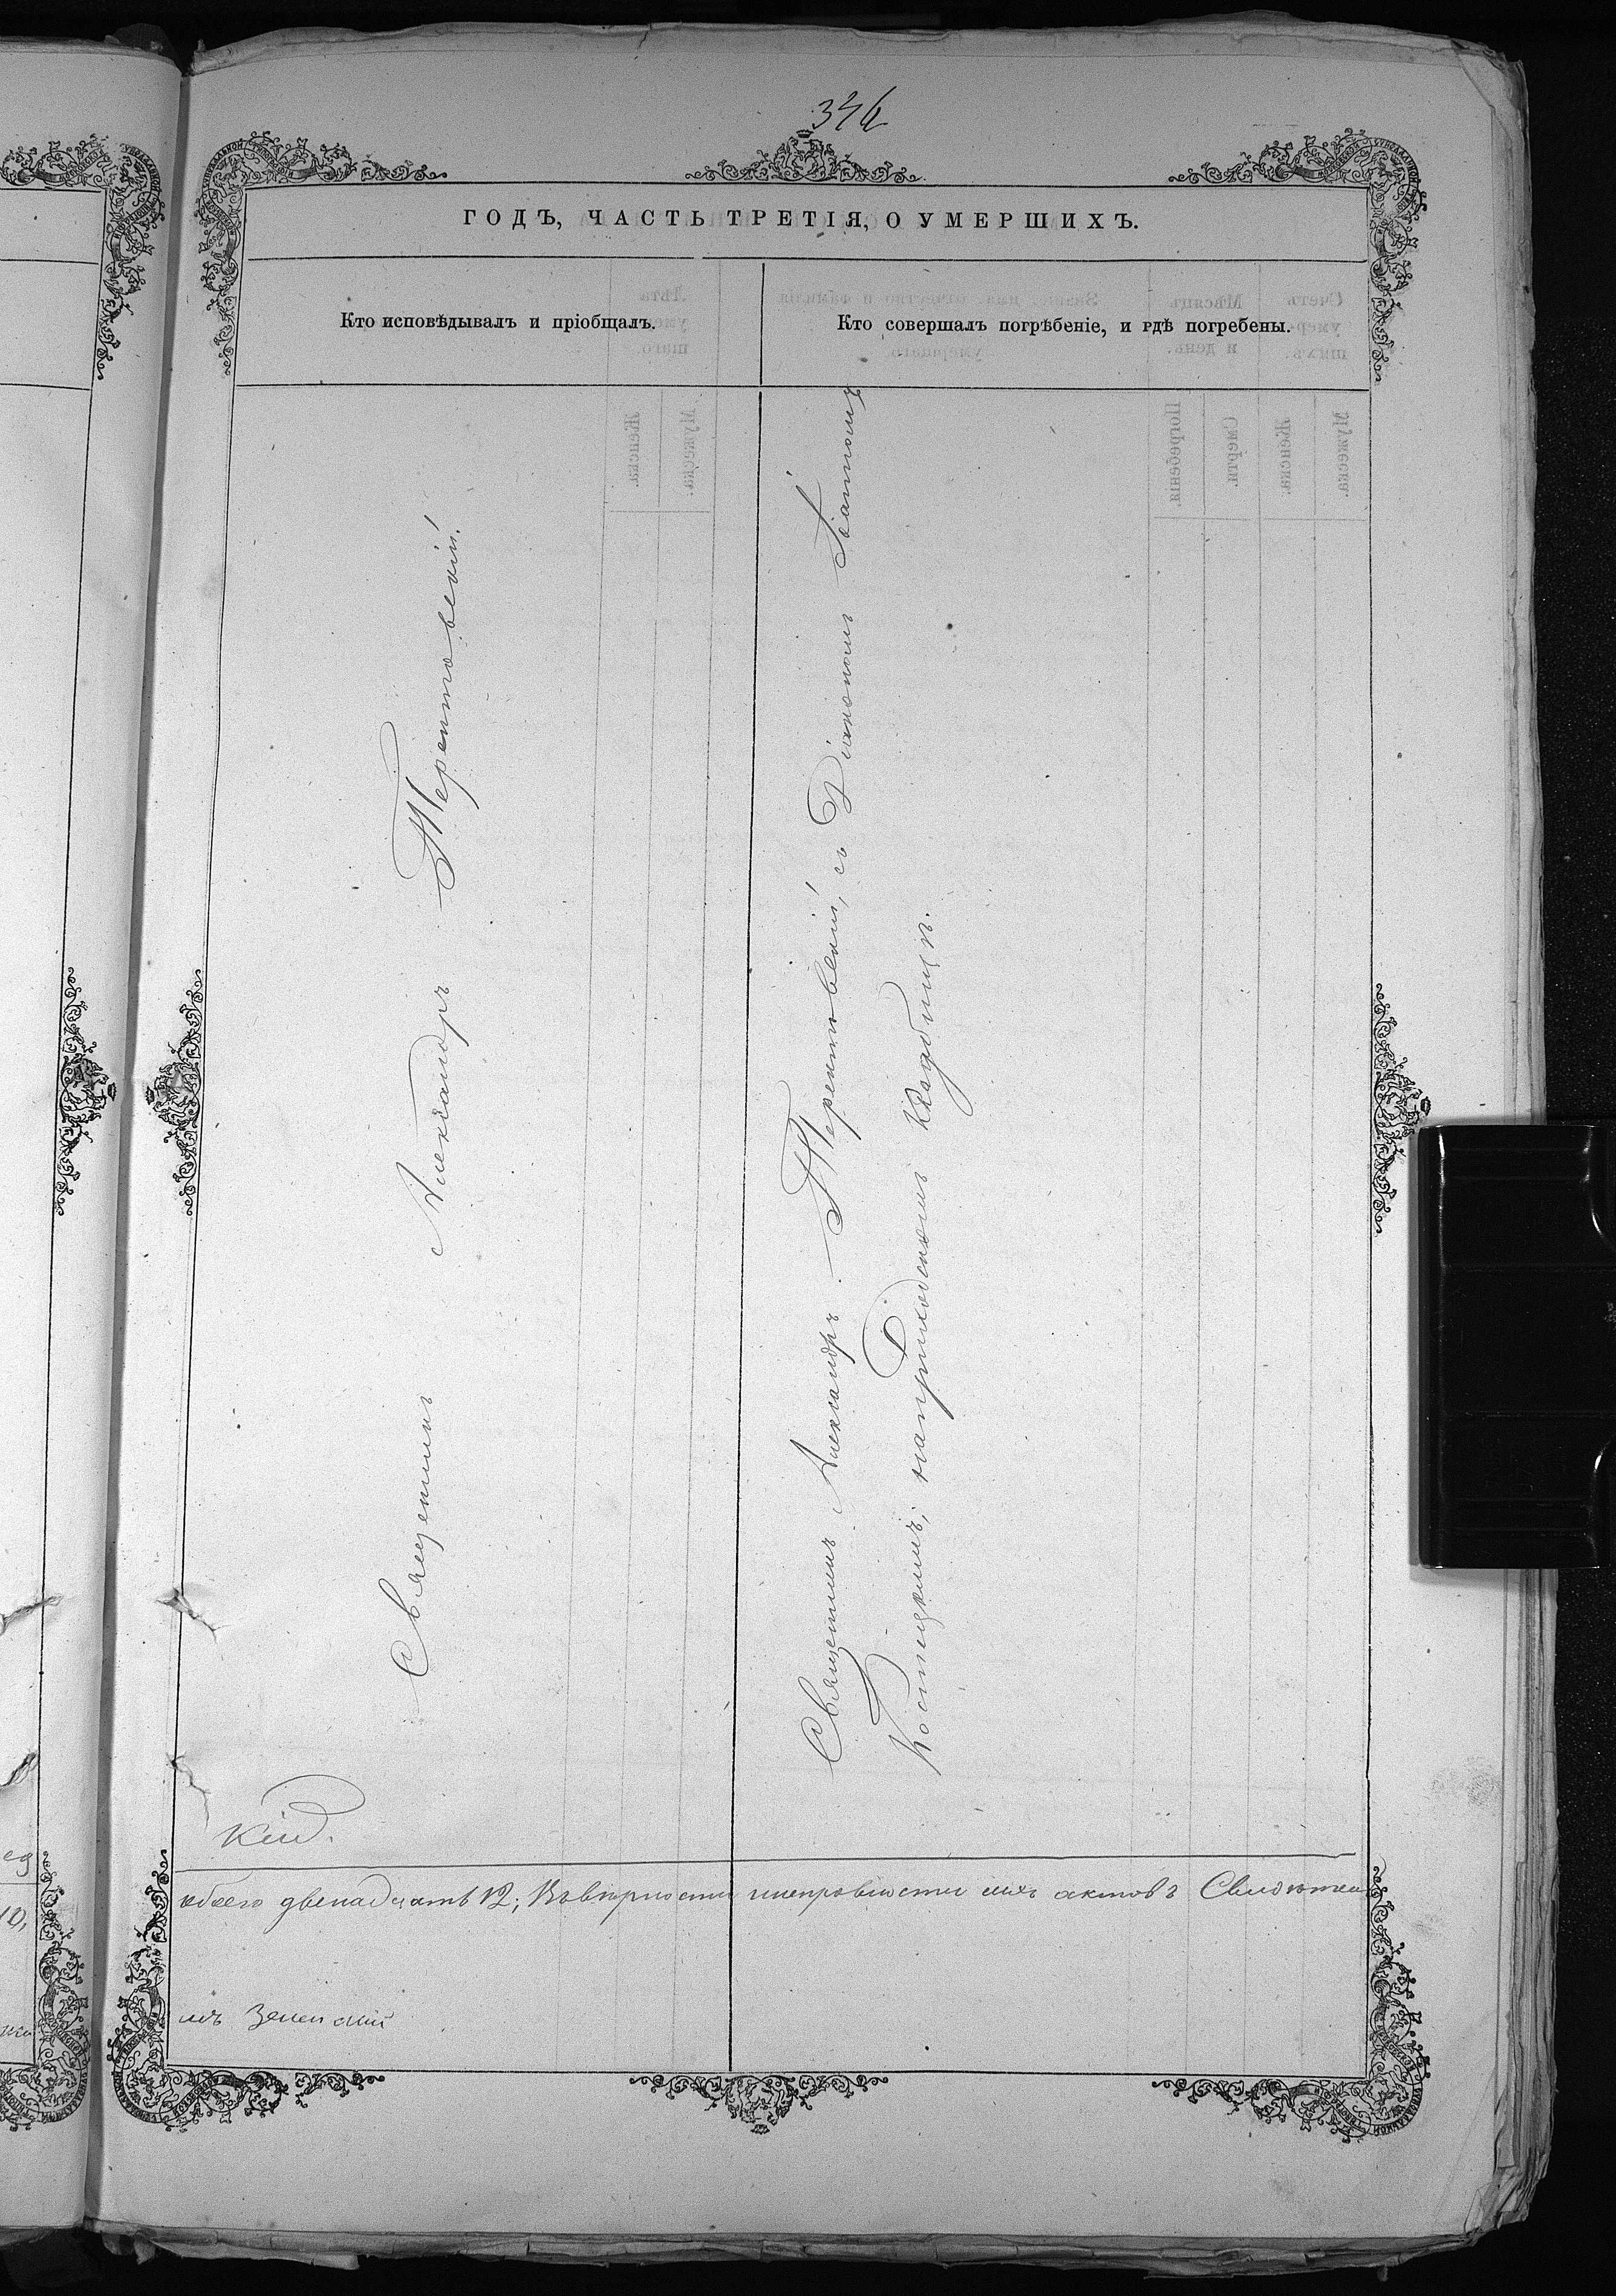 346
ГОДЪ, ЧАСТЬ ТРЕТІЯ, О УМЕРШИХЪ.
Кто исповѣдывалъ и пріобщалъ.
Кто совершалъ погрѣбеніе, и гдѣ погребены.
Священникъ Александръ Терентовскій.
Священникъ Александръ Терентовскій, съ Діакономъ Іоанномъ
Костецкимъ, на приходскомъ кладбищѣ.
кій.
обоего двенадцать 12; Въ вѣрности актовъ
мъ